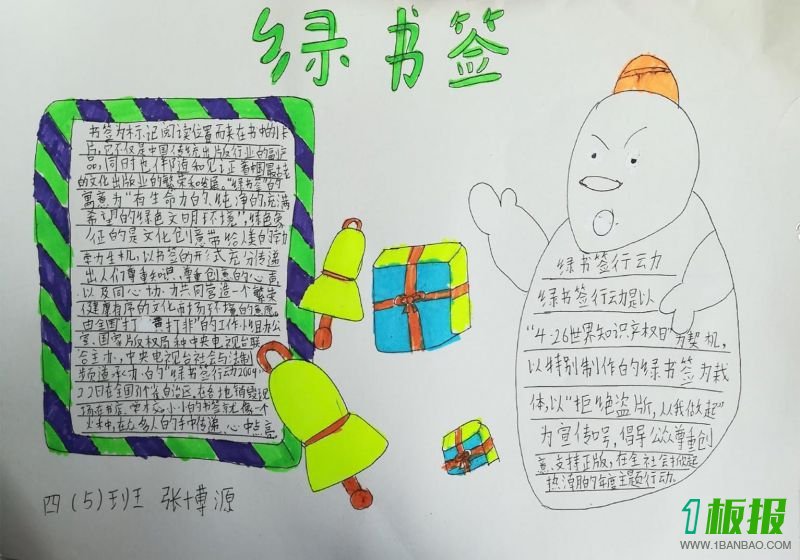 绿书签
书签为标记阅读位置而夹在书中的卡
片,它不仅是中国传统出版行业的副产
品,同时也伴随和见证着中国最持
的文化出版业的繁荣和发展。"绿书签"的
寓意为"有生命力的、纯净的、充满
希望的绿色文明环境",绿色象
征的是文化创意带给人类的勃
勃生机,以书签的形式充分传递
出人们尊重知识、尊重创意的心声,
以及同心协力共同营造一个繁荣
健康有序的文化市场环境的意愿。
由全国"扫 打非"的工作小组办公
室、国家版权局和中央电视台联
合主办,中央电视台社会与法制
频道承办的"绿书签行动2009"
22日在全国31个省自治区
小小的书签就像一个
火种,在众多人的手中传递,心中点亮
四(5)班 张博源
绿书签行动
绿书签行动是以
"4·26世界知识产权日"为契机,
以特别制作的绿书签为载
体,以"拒绝盗版,从我做起"
为宣传口号,倡导公众尊重创
意、支持正版,在全社会掀起
热潮的年度主题行动。
1板报
WWW.1BANBAO.COM